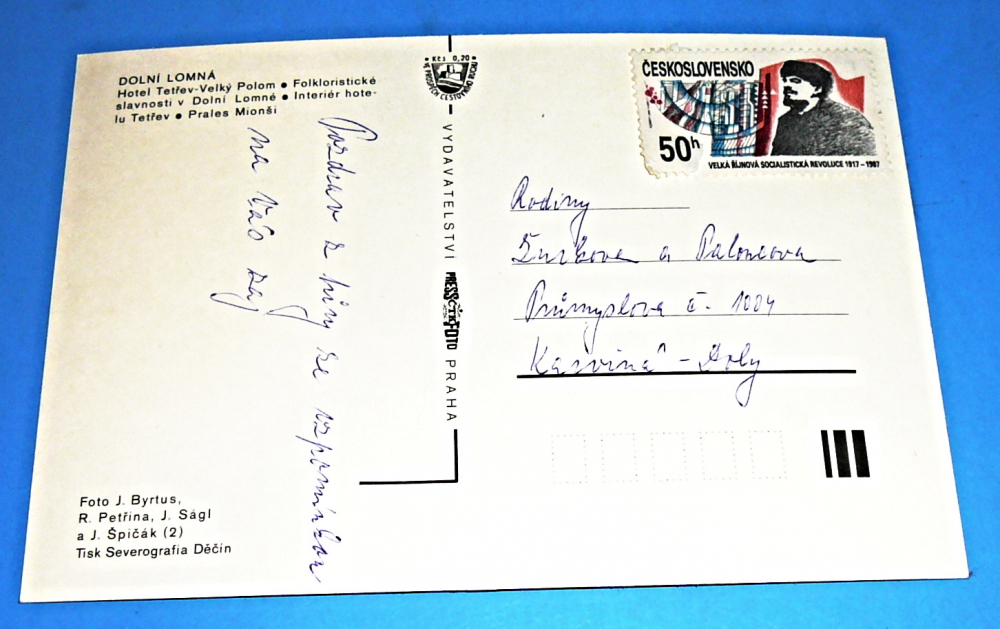 DOLNÍ LOMNÁ
Hotel Tetřev-Velký Polom ● Folkloristické
slavnosti v Dolní Lomné ● Interiér hote-
lu Tetřev ● Prales Mionší
Pozdrav z túry se vzpomínkou
na Vás
Foto J. Byrtus,
R. Petřina, J. Ságl
a J. Špičák (2)
Tisk Severografia Děčín
Kčs 0,20
VE PROSPĚCH CESTOVNÍHO RUCHU
VYDAVATELSTVÍ PRESSFOTO PRAHA
ČTK
ČESKOSLOVENSKO
50h
VELKÁ ŘÍJNOVÁ SOCIALISTICKÁ REVOLUCE 1917–1987
Rodiny
a
Průmyslova č. 1004
Karviná - Doly